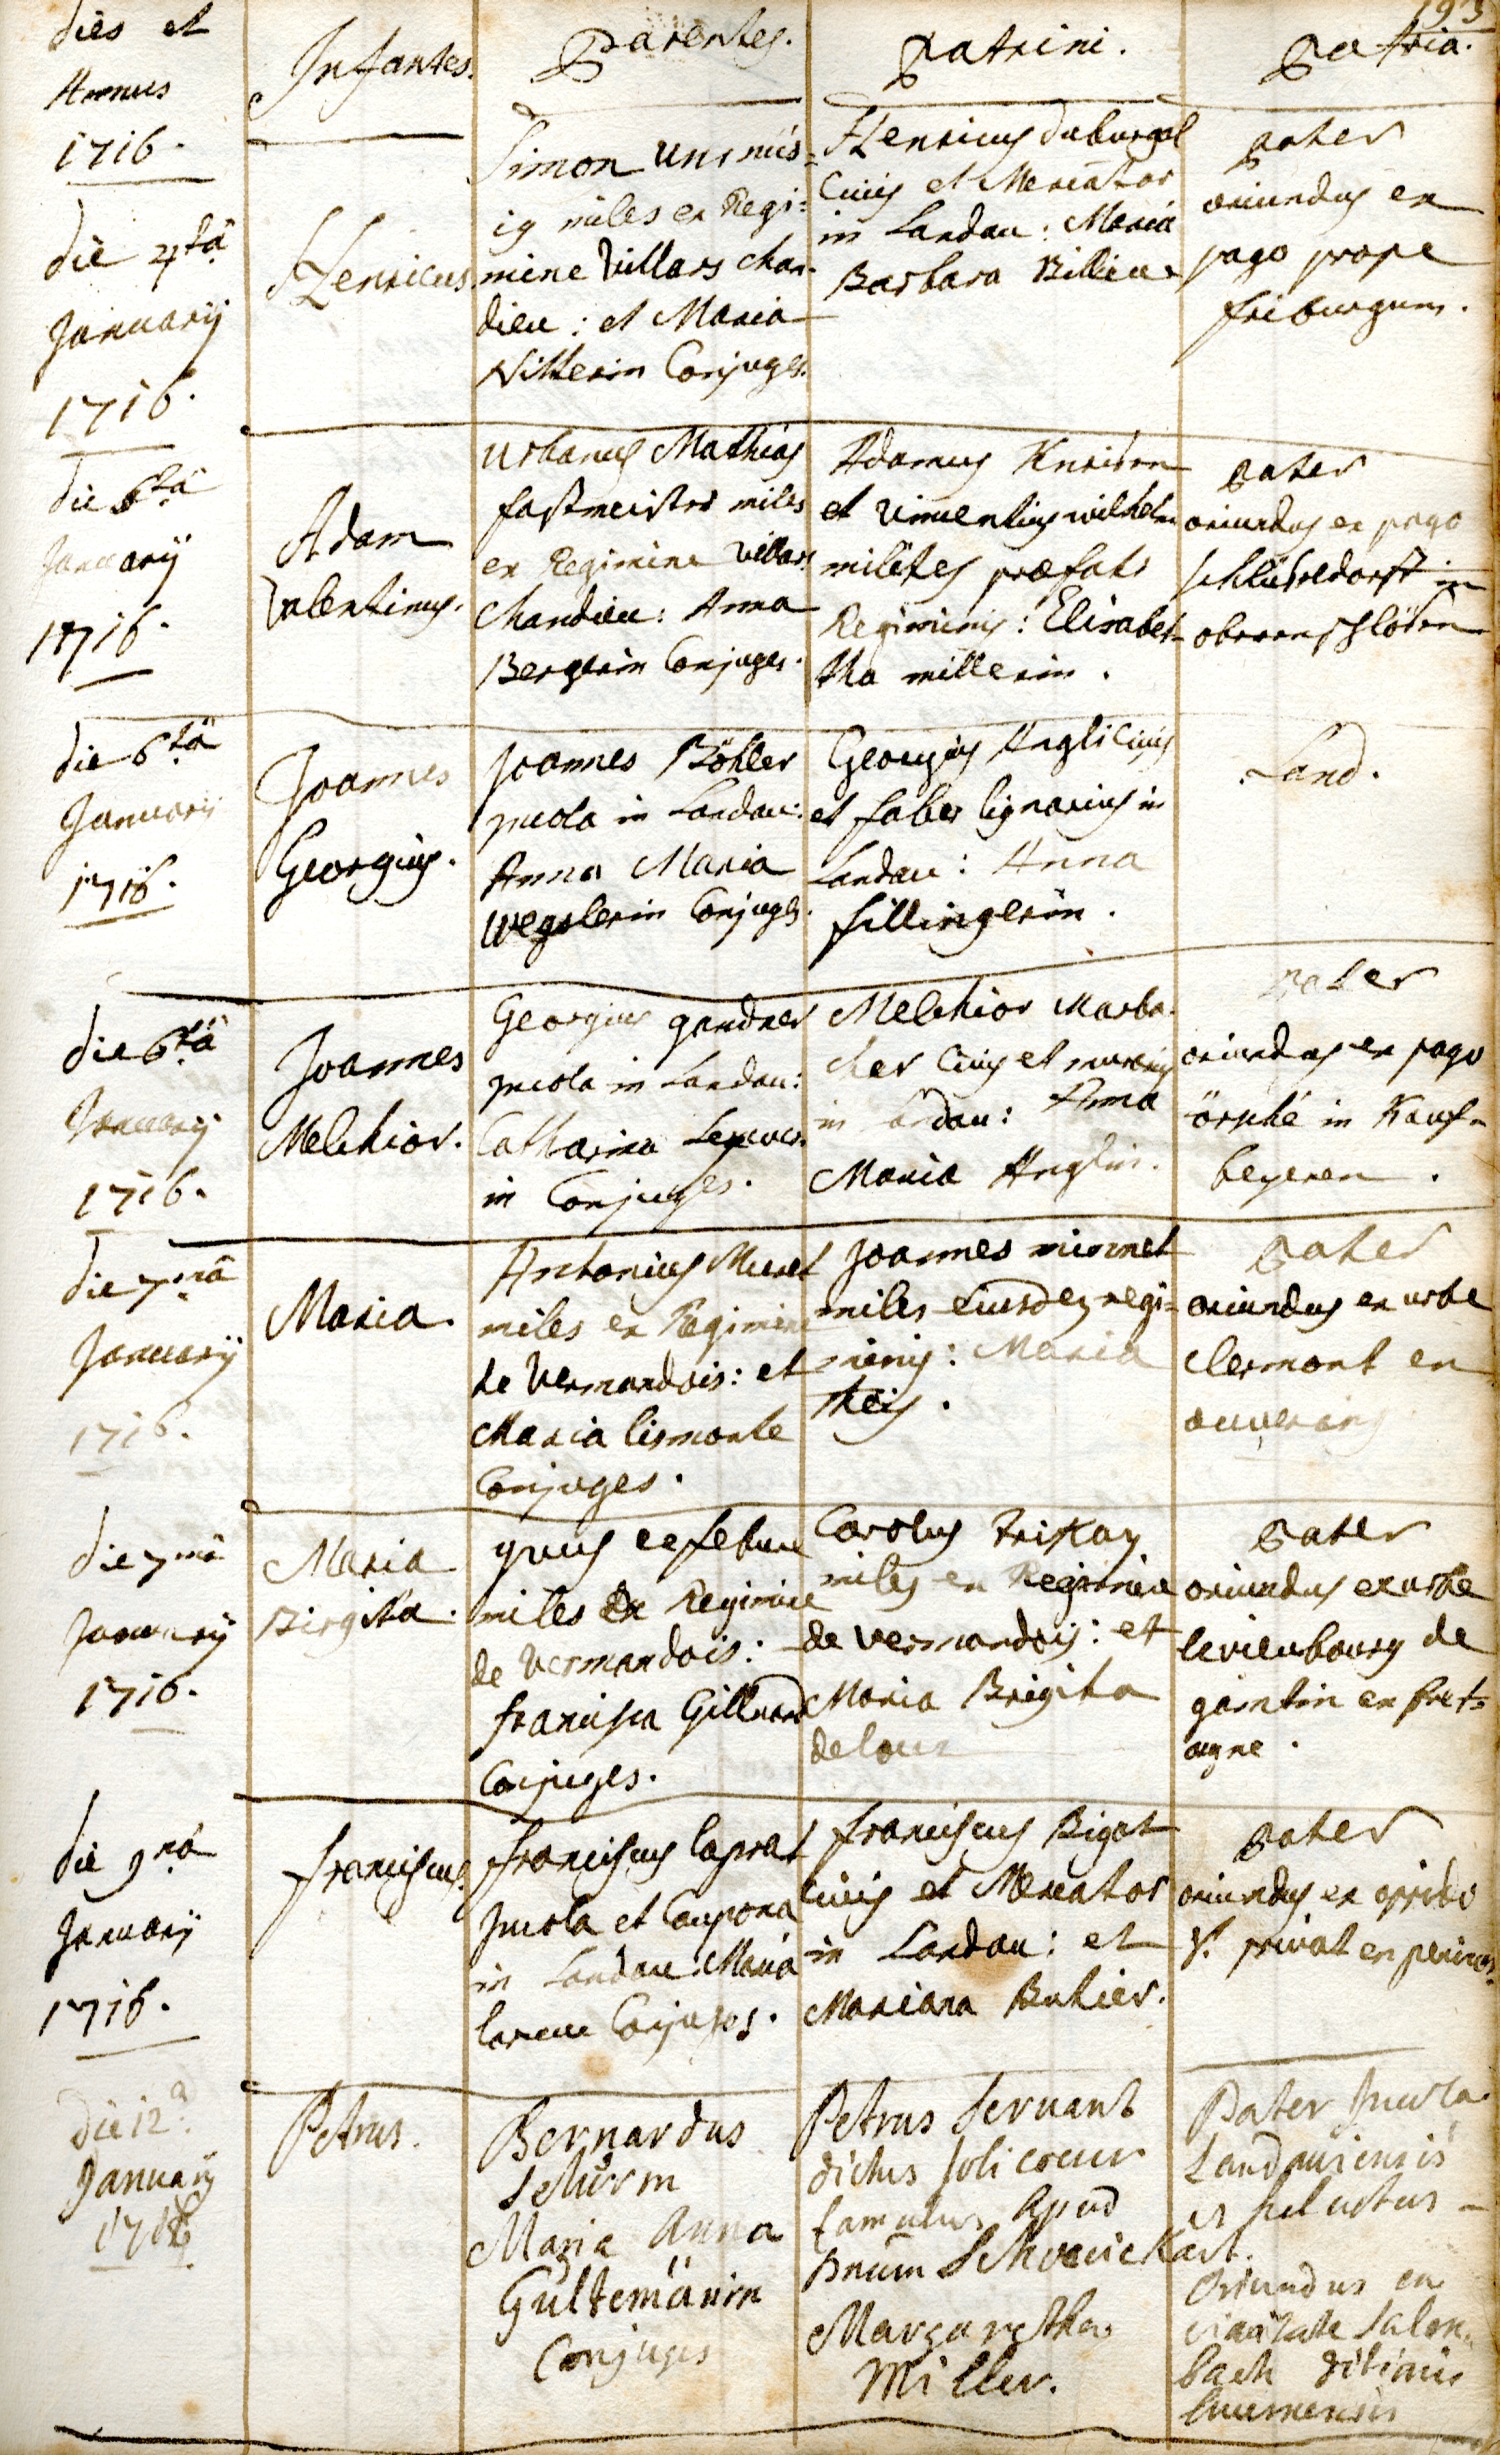 193
dies et
Annus
1716.
Infantes.
Parentes.
Patrini.
Patria.
die 4tâ
Januarij
1716.
Henricus
Simon
miles ex Regi=
mine Villars chan-
dieu: et Maria
Conjuges.
Henricus
Civis et Mercator
in Landau: Maria
Barbara
pater
oriundus ex
pago prope
friburgum.
die 6tâ
Januarij
1716.
Adam
Valentinus.
Urbanus Mathias
fastmeister miles
ex Regimine Villars
Chandieu: Anna
Bergerin Conjuges.
Adamus
et wilhelm
milites præfati
Regiminis: Elisabet-
tha millerin.
pater
oriundus ex pago
in
die 6tâ
Januarij
1716.
Joannes
Georgius.
Joannes Böhler
incola in Landau:
Anna Maria
wegslerin Conjuges.
Georgius Angli Civis
et faber lignarius in
Landau: Anna
fillingerin.
Land.
die 6tâ
Januarij
1716.
Joannes
Melchior.
Georgius gandner
incola in Landau:
Catharina
in Conjuges.
Melchior Marba-
cher Civis et
in Landau: Anna
Maria Anglin.
pater
oriundus ex pago
in Kauf-
beyeren.
die 7mâ
Januarij
1716.
Maria.
Antonius Muret
miles ex Regimine
de Vermandois: et
Maria lismonte
Conjuges.
Joannes minnet
miles eiusdem regi=
minis: Maria
pater
oriundus ex urbe
clermont en
die 7mâ
Januarij
1716.
Maria
Birgita.
yvus lefebure
miles ex Regimine
de vermandois:
francisca Gilluard
Conjuges.
Carolus
miles ex Regimine
de vermandois: et
Maria Brigita
pater
oriundus ex urbe
de
en bret=
agne.
die 9nâ
Januarij
1716.
franciscus
franciscus laprat
incola et Caupona
in Landau Maria
Conjuges.
franciscus Bigot
Civis et Mercator
in Landau: et
Mariana Butier.
pater
oriundus ex oppido
privat en
die 12a
Januarij
1716.
Petrus.
Bernardus
Schürm
Maria Anna
Gültemänin
Conjuges
Petrus Servant
dictus Joli coeur
famulus apud
Dnum Schweickart.
Margaretha
Miller.
Pater Incola
Landaviensis
Oriundus ex
civitate
bach ditionis